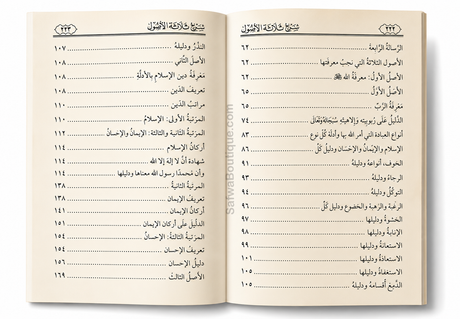 شرح ثلاثة الأصول
٢٢٢
الرسالة الرابعة ٦٢
الأصول الثلاثة التي تجب معرفتها ٦٢
الأصل الأول: معرفة الله ٦٢
الأصل الأول ٦٥
معرفة الرب ٦٥
الدليل على ربوبيته وإلاهيته سبحانه وتعالى ٧٤
أنواع العبادة التي أمر الله بها وأدلة كل نوع ٨٣
الإسلام والإيمان والإحسان ودليل كل ٨٦
الخوف، أنواعه ودليله ٩١
الرجاء ودليله ٩٣
التوكل ودليله ٩٤
الرغبة والرهبة والخضوع ودليل كل ٩٦
الخشية ودليلها ٩٧
الإنابة ودليلها ٩٨
الاستعانة ودليلها ٩٩
الاستعاذة ودليلها ١٠١
الاستغاثة ودليلها ١٠٥
الذبح أقسامه ودليله ١٠٥
شرح ثلاثة الأصول
٢٢٣
النذر ودليله ١٠٧
الأصل الثاني ١٠٨
معرفة دين الإسلام بالأدلة ١٠٨
تعريف الدين ١٠٨
مراتب الدين ١١٠
المرتبة الأولى: الإسلام ١١٠
المرتبة الثانية والثالثة: الإيمان والإحسان ١١٢
أركان الإسلام ١١٤
شهادة أن لا إله إلا الله ١١٤
وأن محمدا رسول الله معناها ودليلها ١١٤
المرتبة الثانية ١٣٨
تعريف الإيمان ١٣٨
أركان الإيمان ١٤١
الدليل على أركان الإيمان ١٥١
المرتبة الثالثة: الإحسان ١٥٤
تعريف الإحسان ١٥٤
دليل الإحسان ١٥٦
الأصل الثالث ١٦٩
SalwaBoutique.com